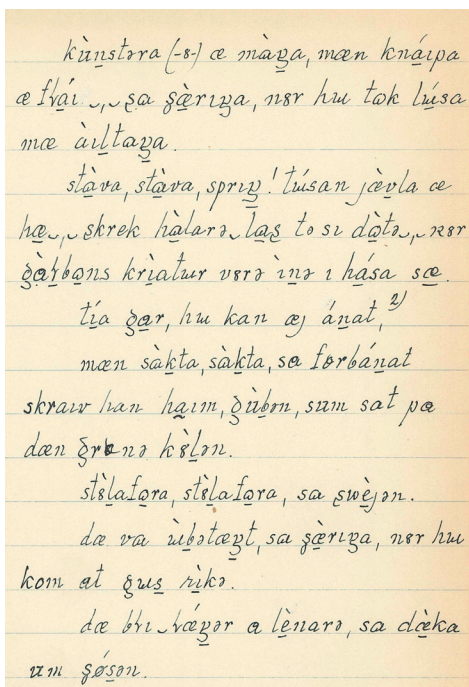 kùnstəra (-8-) æ màga, mæn knáipa
æ frái ‿,‿ sa gæ̀rıga, nɤr hɯ tok lɯ́sa
mæ àıltaga.
stàva, stàva, sprıg! tɯ́san jævla æ
hæ‿,‿ skrek hàlarə‿las to sı dɑ̀tə‿,‿ nɤr
gàrbɑns krìatɯr vɤrə ìnə ı hása sæ.
tía gɑr, hɯ kan æj ánat, 2)
mæn sàkta, sàkta, sɑ førbánat
skraıw han haım, gùbən, sum sat pɑ
dæn grønə kɤ̀lən.
stɤ̀lafɑra, stɤ̀lafɑra, sɑ swèjən.
dæ va ɯ̀bətægt, sa gæ̀rıga, nɤr hɯ
kom at gɯs rìkə.
dæ brı‿rǽgər ɑ lènarə, sɑ dæ̀ka
um gǿsən.